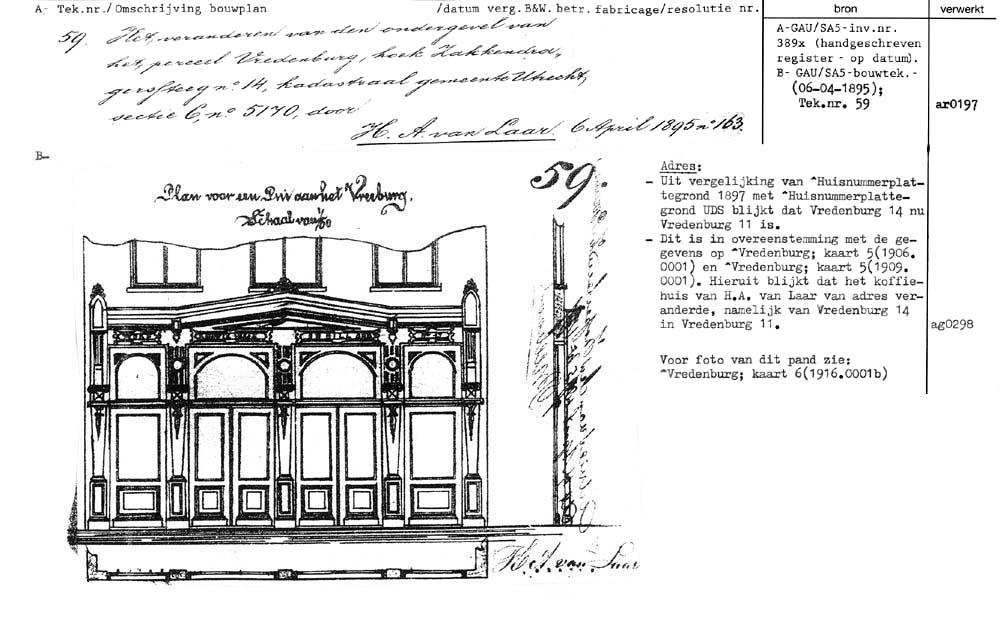 A- Tek.nr./ Omschrijving bouwplan /datum verg.B&W. betr. fabricage/resolutie nr.
bron
verwerkt
59. Het veranderen van den ondergevel van
het perceel Vredenburg, hoek Zakkendra„
gerssteeg nº 14, kadastraal gemeente Utrecht,
sectie C, nº 5170, door
H. A. van Laar. 6 April 1895 nº 163.
A-GAU/SA5-inv.nr.
389x (handgeschreven
register - op datum).
B- GAU/SA5-bouwtek.-
(06-04-1895);
Tek.nr. 59
ar0197
B-
Plan voor een Pui aan het Vreeburg.
Schaal van 1/50
59.
H. A. van Laar
Adres:
- Uit vergelijking van ^Huisnummerplat-
tegrond 1897 met ^Huisnummerplatte-
grond UDS blijkt dat Vredenburg 14 nu
Vredenburg 11 is.
- Dit is in overeenstemming met de ge-
gevens op ^Vredenburg; kaart 5(1906.
0001) en ^Vredenburg; kaart 5(1909.
0001). Hieruit blijkt dat het koffie-
huis van H.A. van Laar van adres ver-
anderde, namelijk van Vredenburg 14
in Vredenburg 11.
ag0298
Voor foto van dit pand zie:
^Vredenburg; kaart 6(1916.0001b)